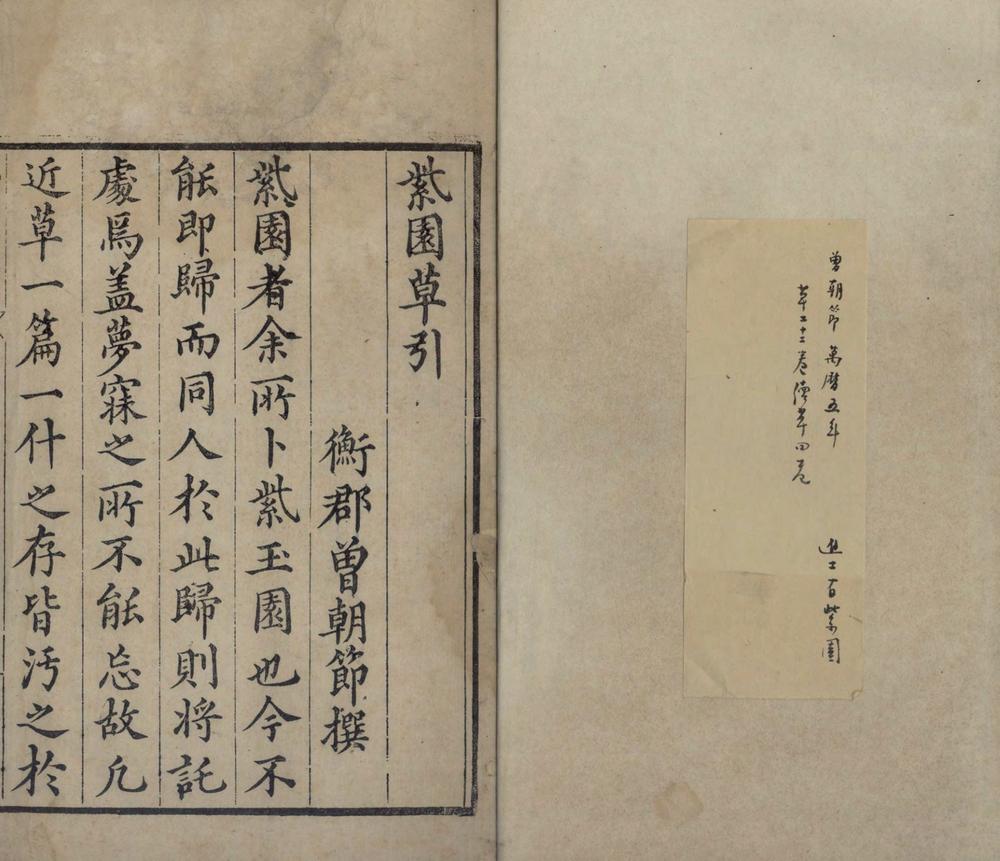 曾朝節 萬曆五年 進士 有紫園
草二十二卷續草四卷
紫園草引
衡郡曾朝節撰
紫園者余所卜紫玉園也今不
能即歸而同人於此歸則将託
處焉盖夢寐之所不能忘故凡
近草一篇一什之存皆汚之於